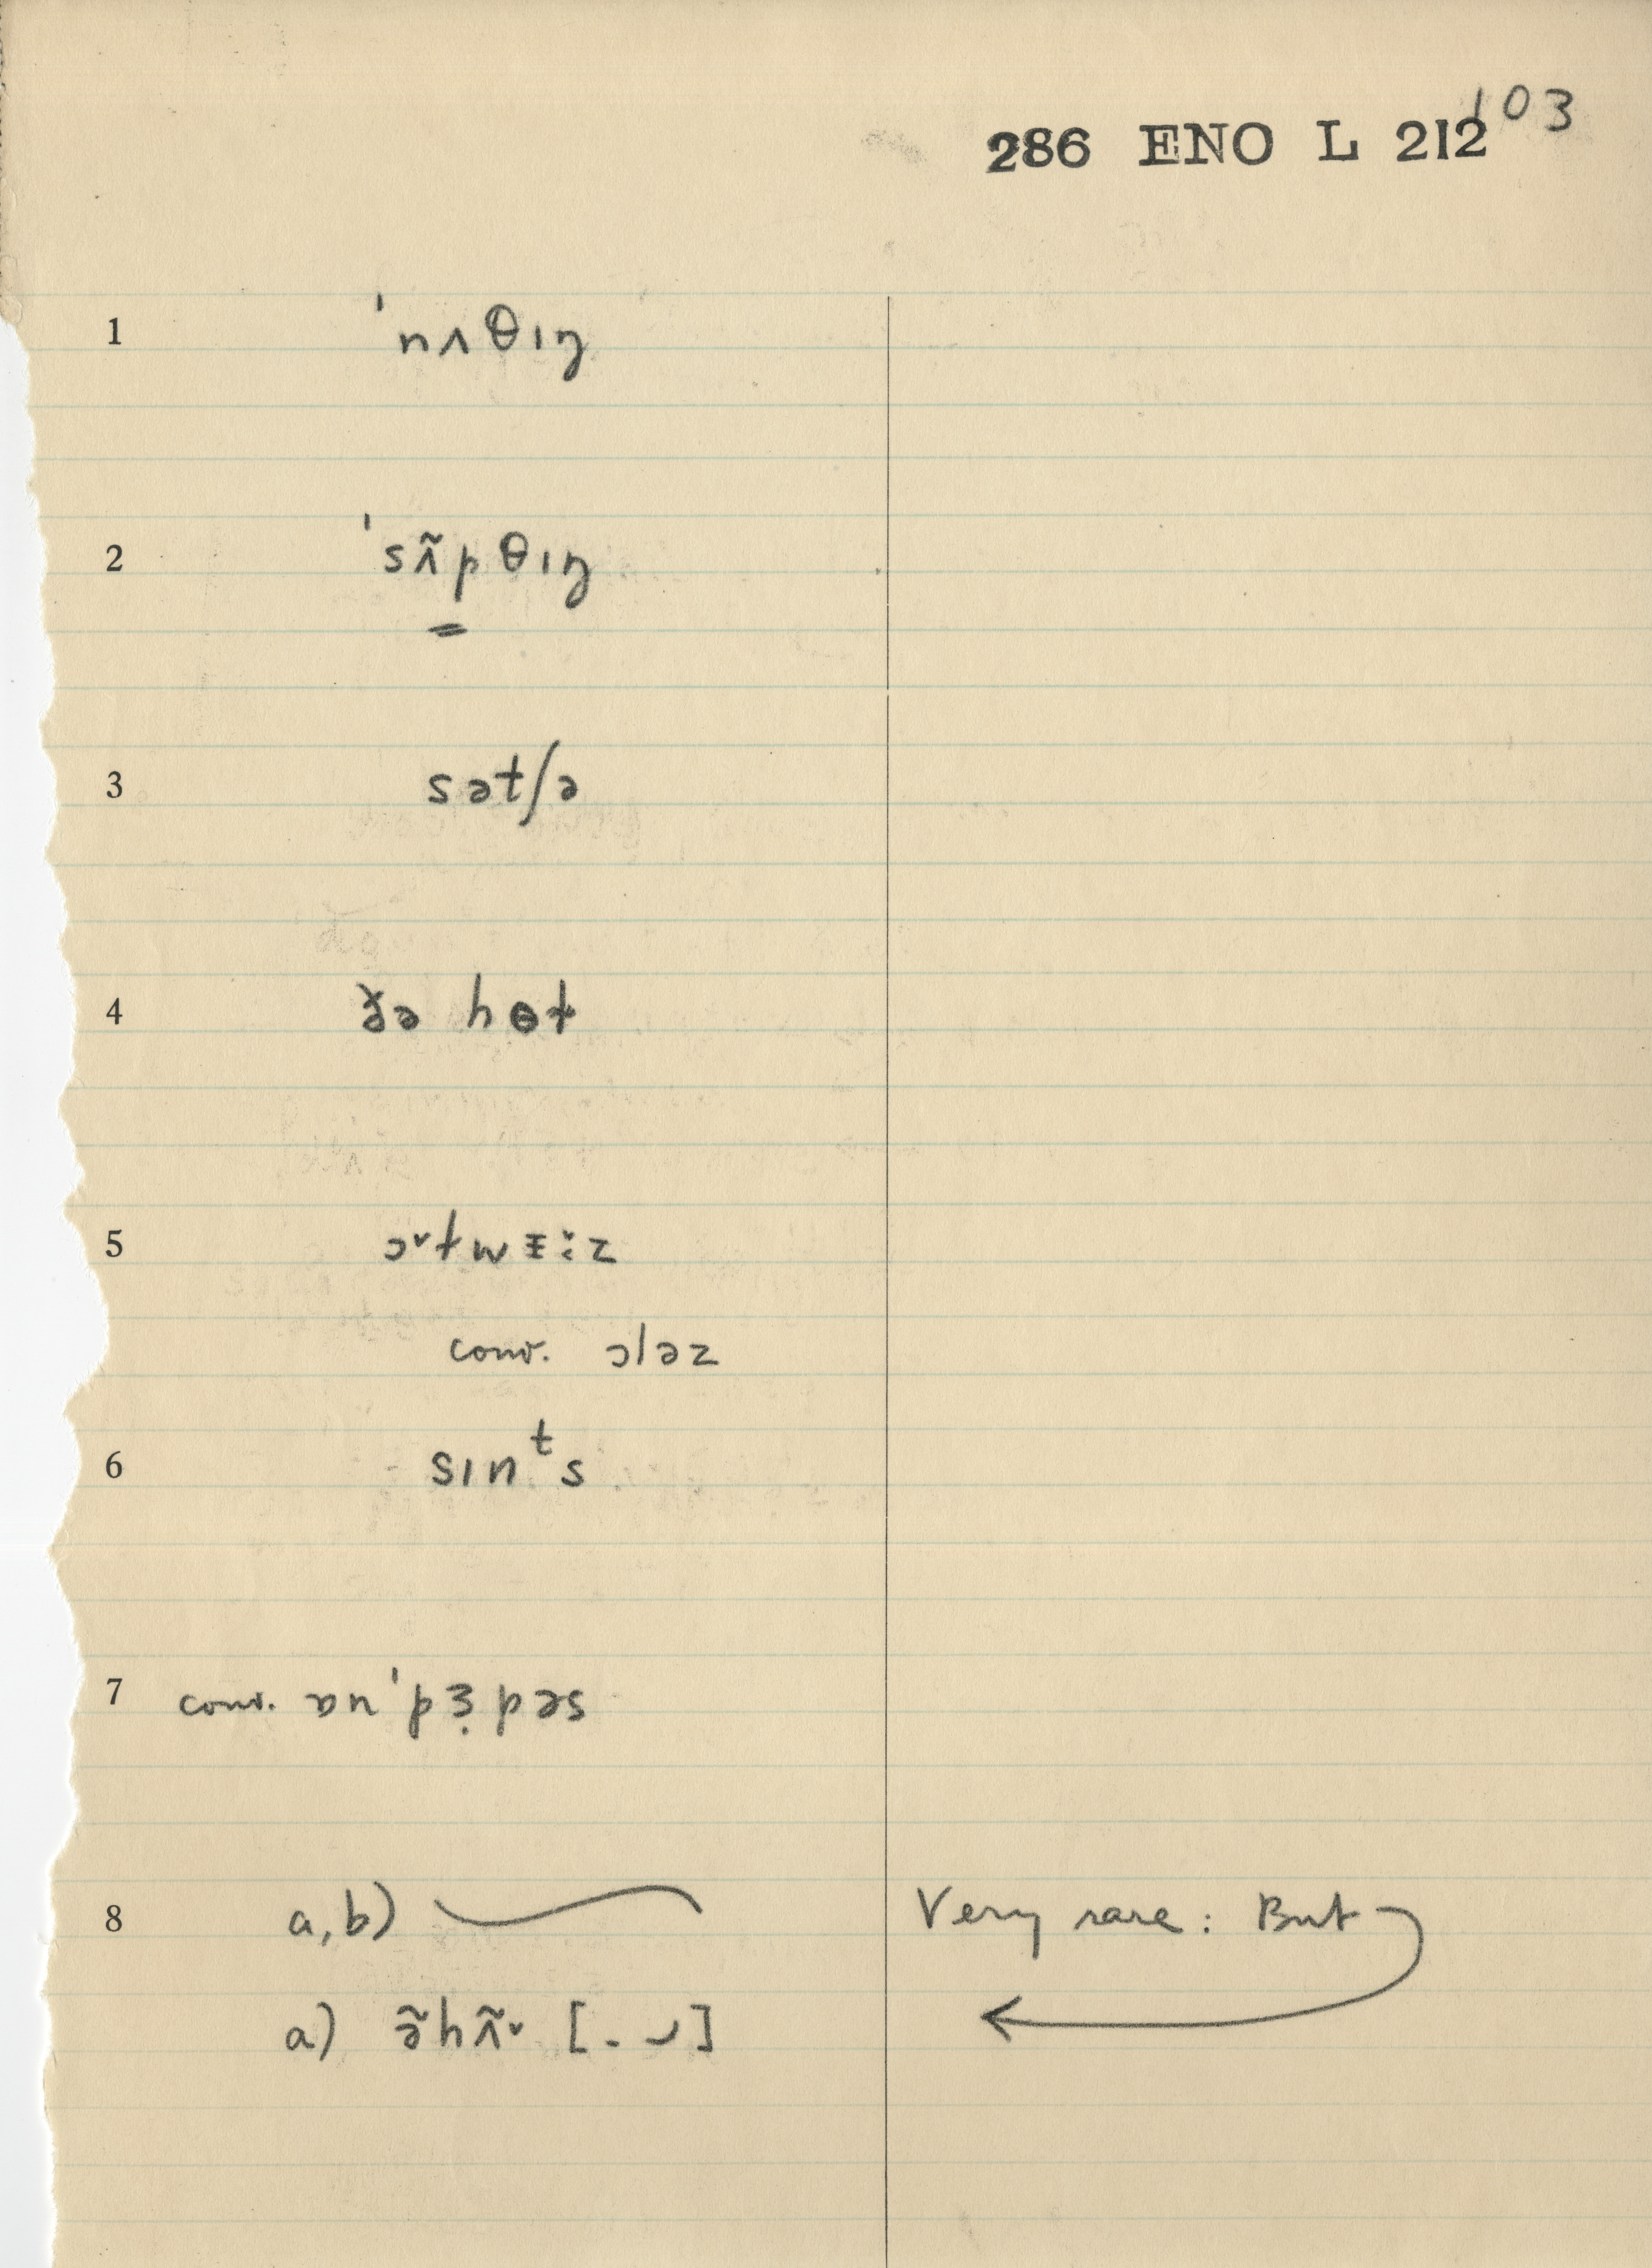 103
286 ENO L 212
1 ˈnʌθɪŋ
2 ˈsʌ̃pθɪŋ
3 sətʃə
4 ðə hɵt
5 ɔ˅twɪ̵ːz
conv. ɔləz
6 sɪnᵗs
7 conv. ɒnˈpɜ̣pəs
8 a, b) Very rare : But
a) ə̃hʌ̃˅ [. ⌣]